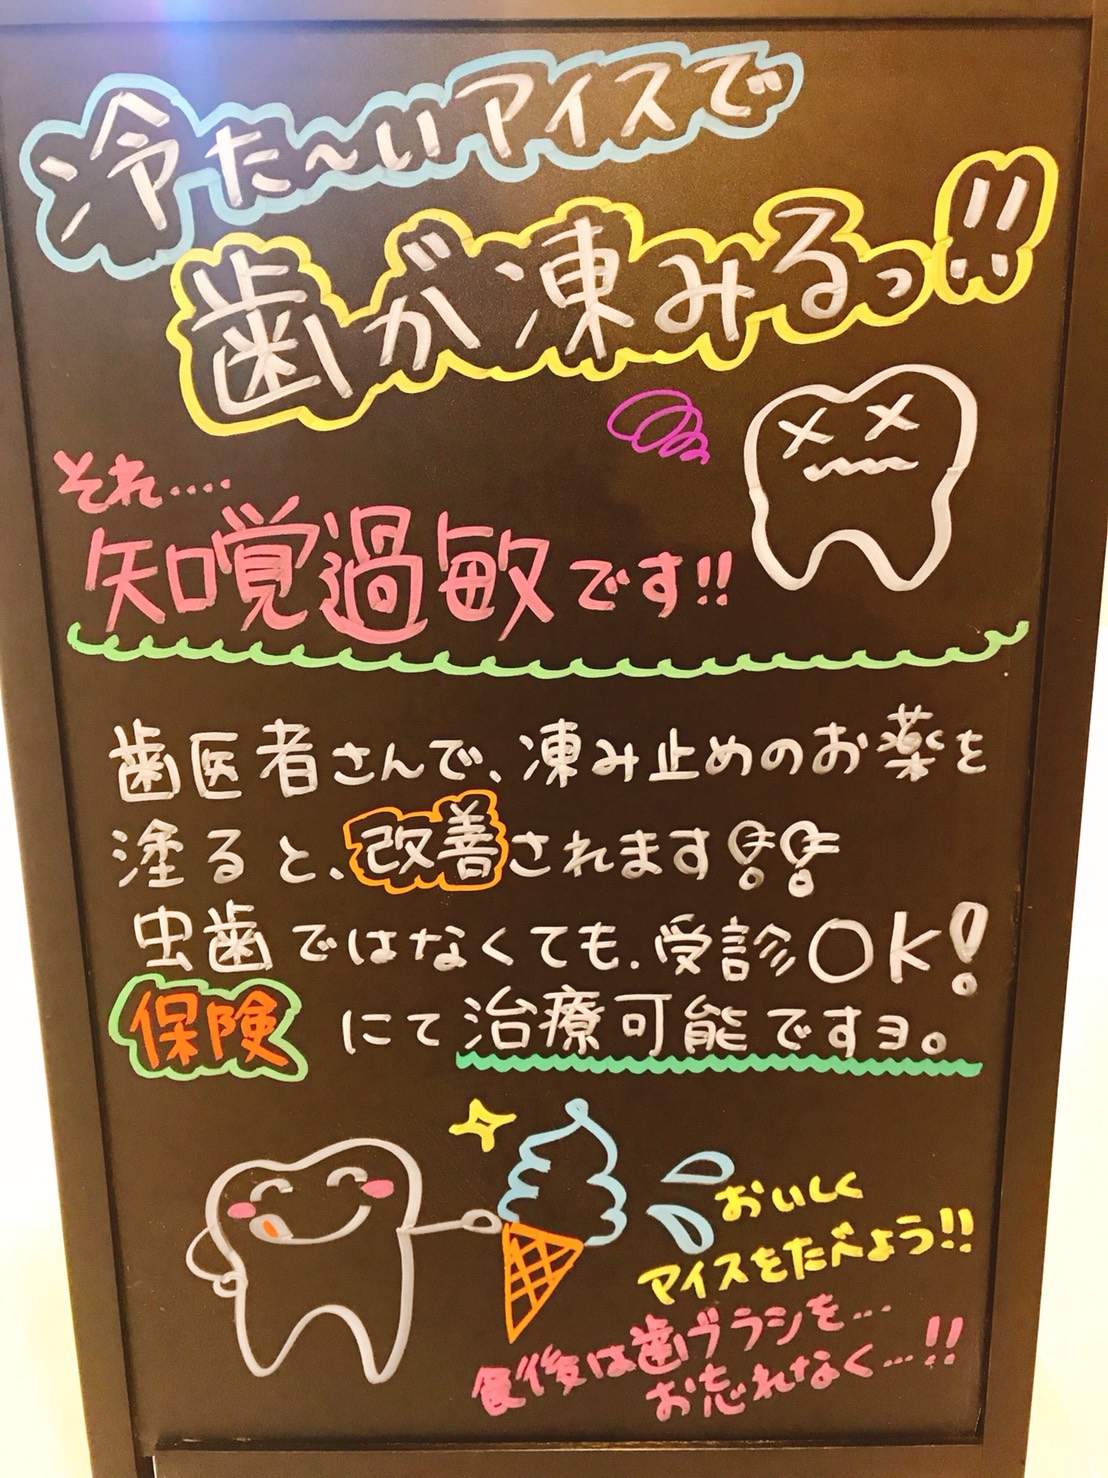 冷た〜いアイスで
歯が凍みるっ!!
それ....
知覚過敏です!!
歯医者さんで、凍み止めのお薬を
塗ると、改善されます!!
虫歯ではなくても、受診OK!
保険 にて治療可能ですョ。
おいしく
アイスをたべよう!!
食後は歯ブラシを…
お忘れなく…!!